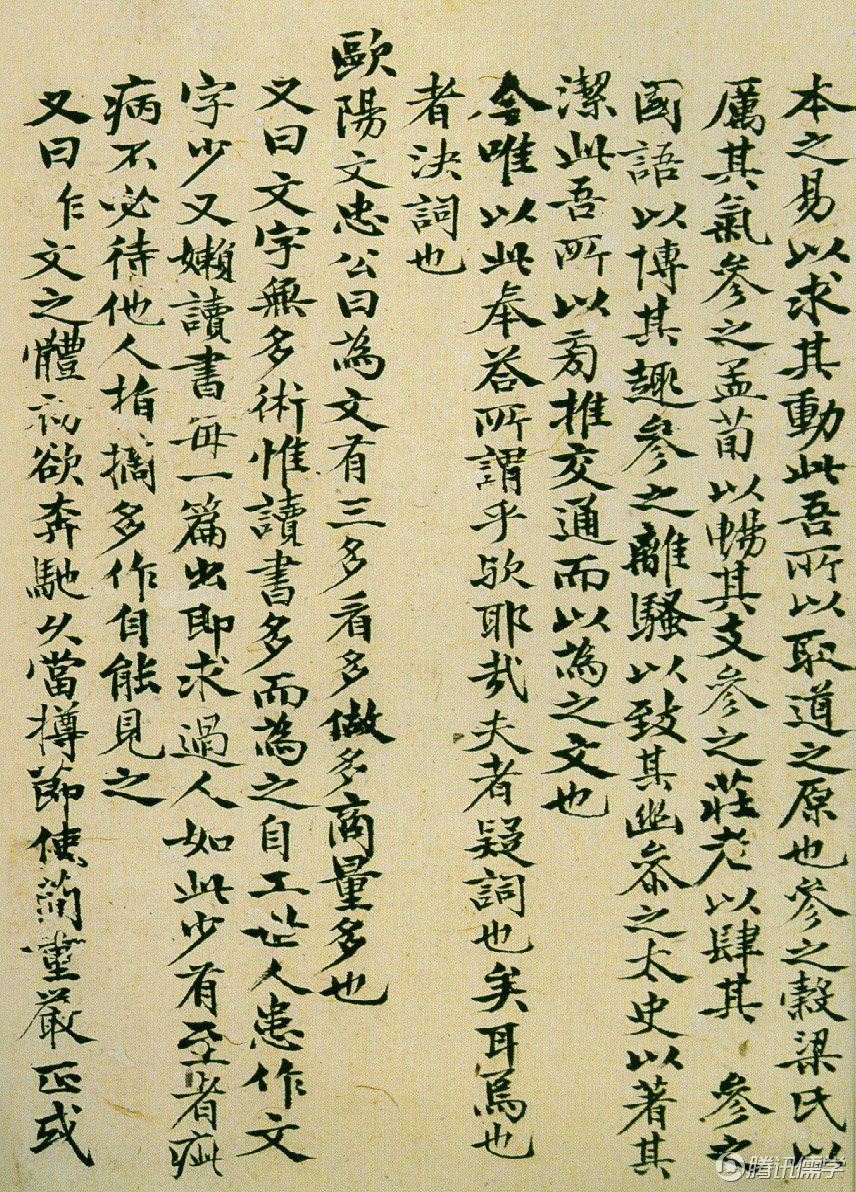 本之易以求其動此吾所以取道之原也參之穀梁氏以
厲其氣參之孟荀以暢其支參之莊老以肆其 參之
國語以博其趣參之離騷以致其幽參之太史以著其
潔此吾所以旁推交通而以為之文也
今唯以此奉荅所謂乎歟耶哉夫者疑詞也矣耳焉也
者決詞也
歐陽文忠公曰為文有三多看多做多商量多也
又曰文字無多術惟讀書多而為之自工世人患作文
字少又嬾讀書每一篇出即求過人如此少有至者疵
病不必待他人指摘多作自能見之
又曰作文之體初欲奔馳久當樽節使簡重嚴正或
腾讯儒学